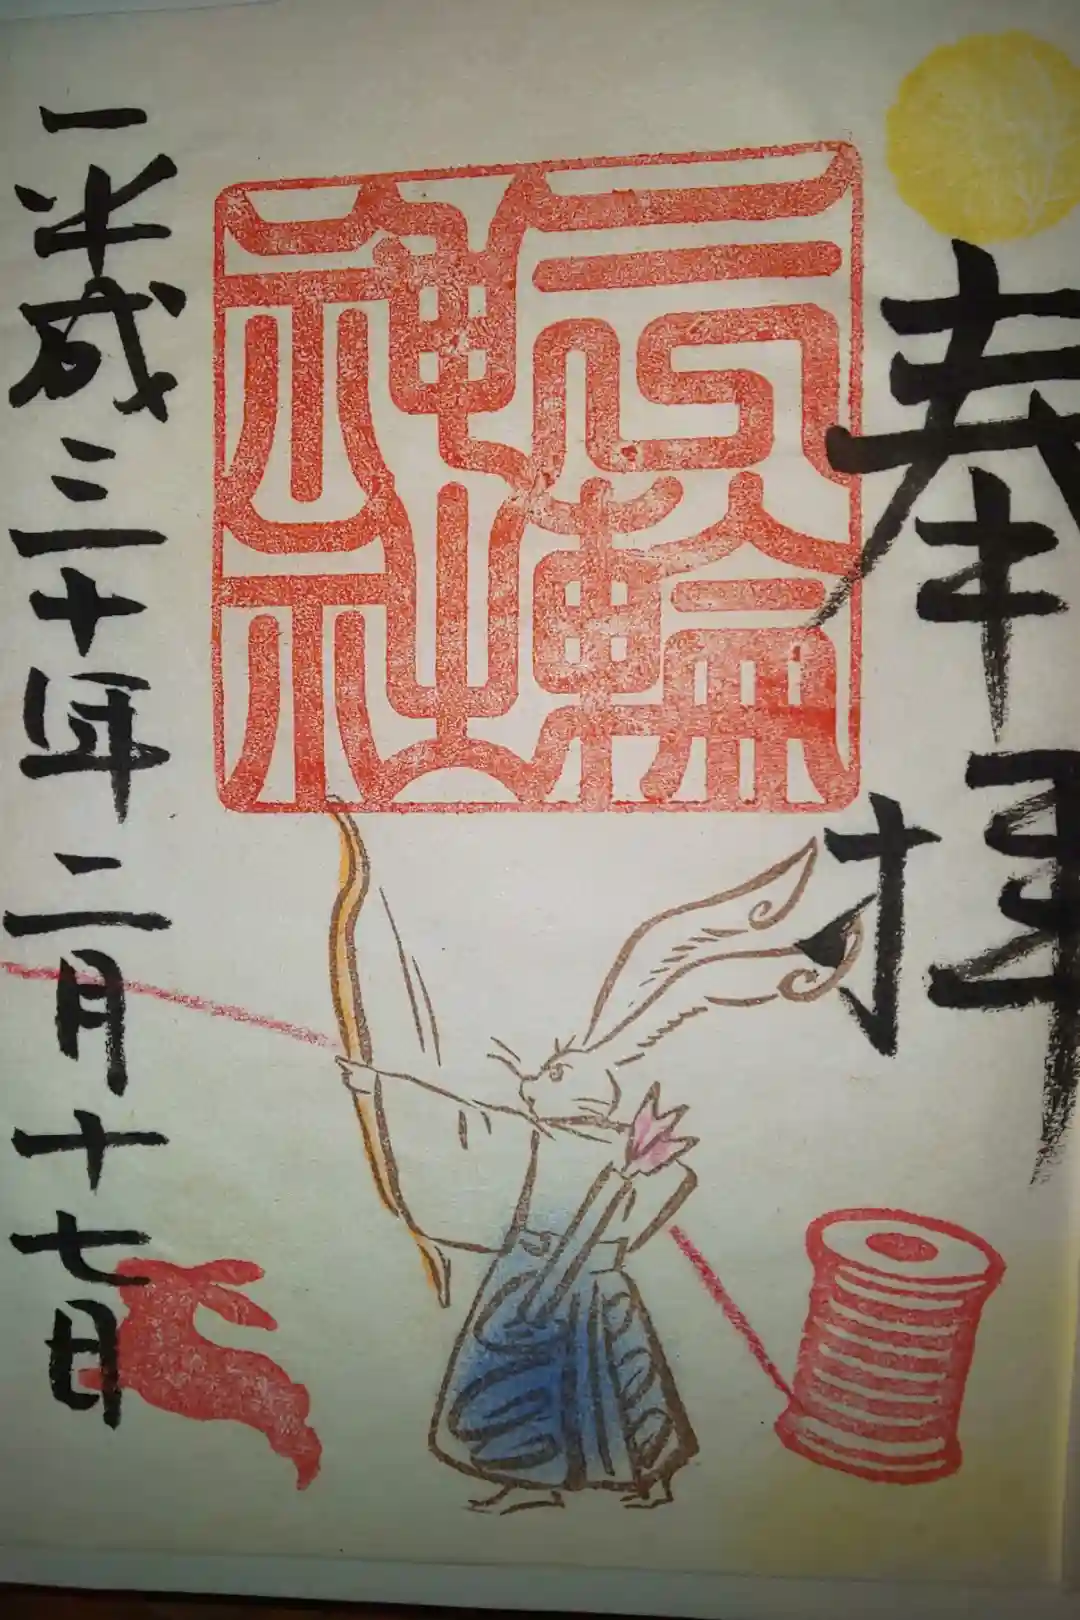 奉拝
三輪
神社
平成三十年二月十七日